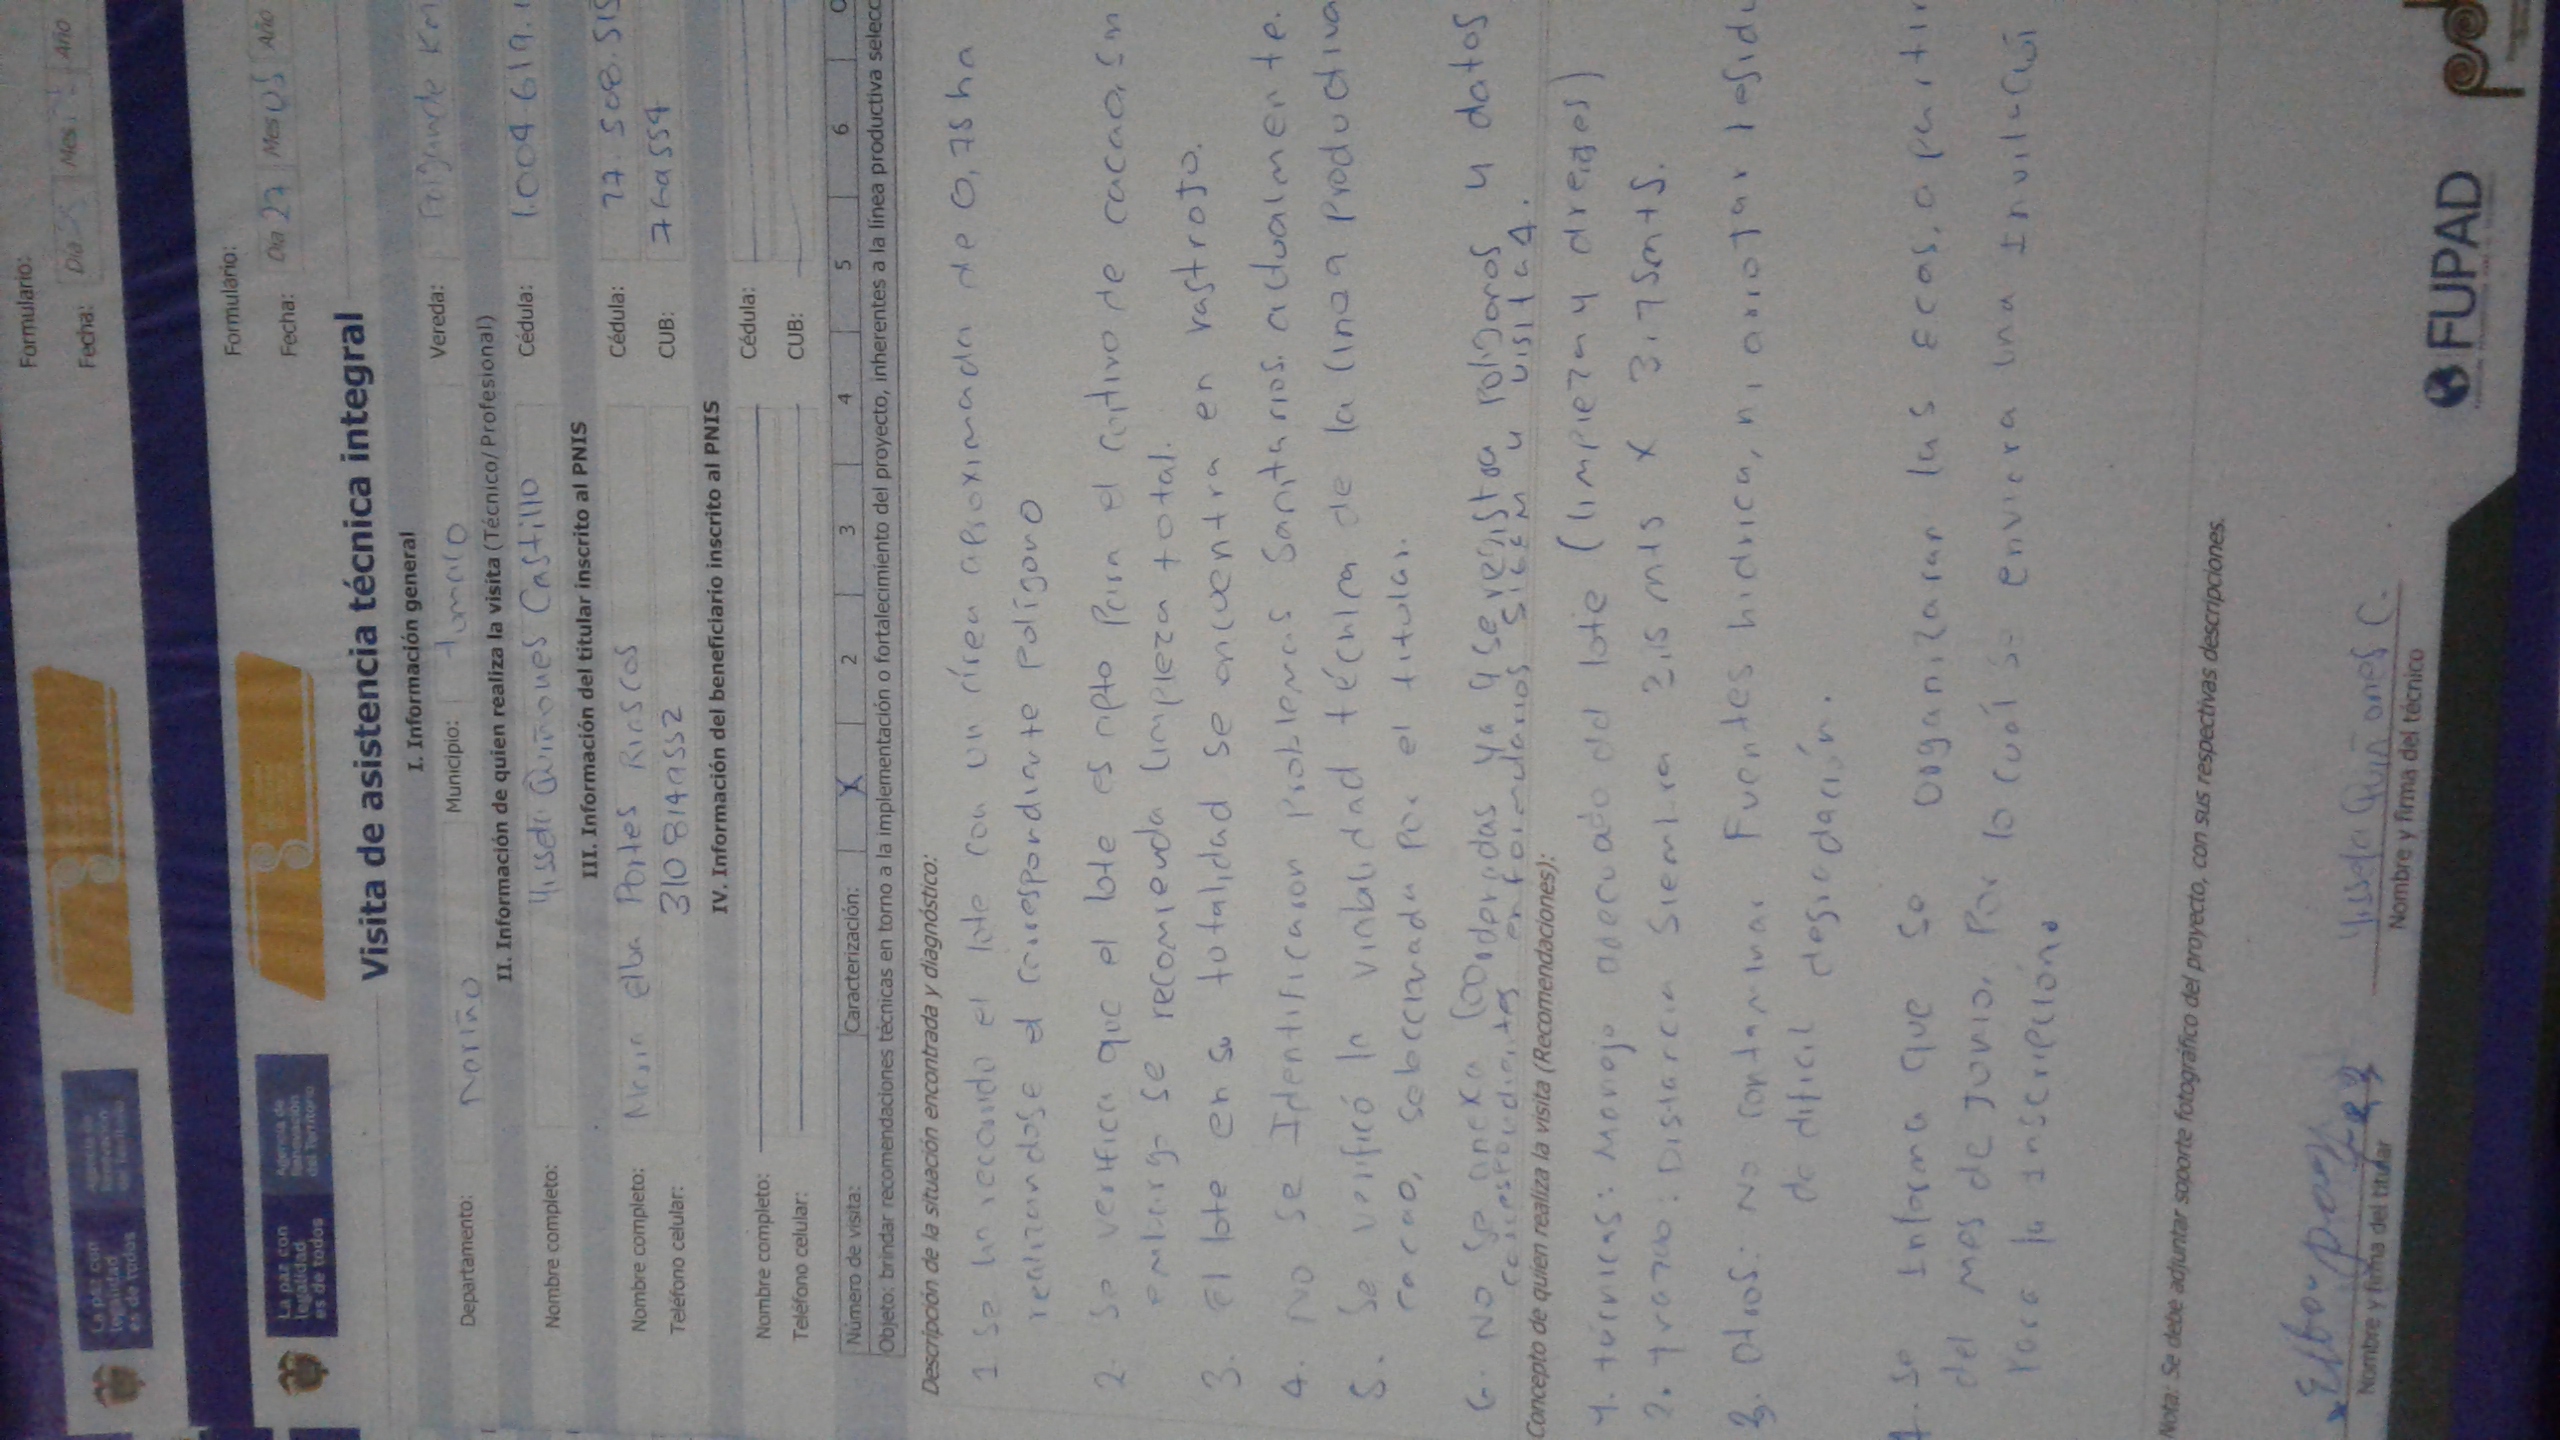 Formulario:
Fecha: Día Mes Año
La paz con legalidad es de todos
Formulario:
La paz con legalidad es de todos
Agencia de Renovación del Territorio
Fecha: Día 27 Mes 05 Año
Visita de asistencia técnica integral
I. Información general
Departamento: Nariño Municipio: Tumaco Vereda: Km
II. Información de quien realiza la visita (Técnico/ Profesional)
Nombre completo: Yisseta Quiñones Castillo Cédula: 1.004.619.
III. Información del titular inscrito al PNIS
Nombre completo: Elba Portes Riascos Cédula: 27.508.515
Teléfono celular: 3108149552 CUB:
IV. Información del beneficiario inscrito al PNIS
Nombre completo: Cédula:
Teléfono celular: CUB:
Número de visita: Caracterización: X 2 3 4 5 6
Objeto: brindar recomendaciones técnicas en torno a la implementación o fortalecimiento del proyecto, inherentes a la línea productiva selecc
Descripción de la situación encontrada y diagnóstico:
1 Se ha recorrido el lote con un área aproximada de 0,75 ha
realizandose el correspondiente polígono
2. Se verifica que el lote es apto para el cultivo de cacao, sin
embargo se recomienda limpieza total.
3. El lote en su totalidad se encuentra en rastrojo.
4. No se Identificaron problemas Sanitarios actualmente.
5. Se verificó la viabilidad técnica de la línea productiva
cacao, seleccionada por el titular.
6. No se anexa coordenadas ya q se registra poligonos y datos
correspondientes en formularios SIGEM u visita 4.
Concepto de quien realiza la visita (Recomendaciones):
1. técnicas: Manejo adecuado del lote (limpieza y drenajes)
2. trazo: Distancia Siembra mts x 3,75 mts.
3. Otros: No contaminar Fuentes hidrica, ni arrojar residu
de dificil degradación.
4. Se Informa que se organizaran las Ecas, a partir
del mes de junio, Por lo cuál se enviera una Invitación
para la Inscripción.
Nota: Se debe adjuntar soporte fotográfico del proyecto, con sus respectivas descripciones.
Yisseta Quiñones C.
Nombre y firma del titular Nombre y firma del técnico
FUPAD